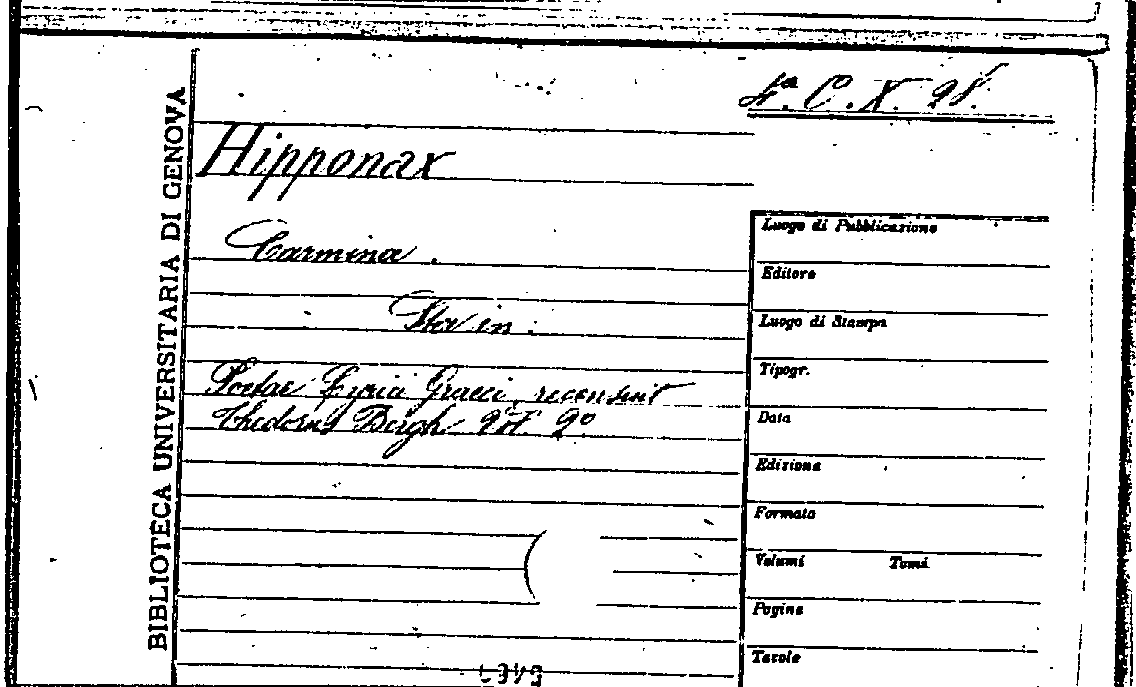 4ª. C. X. 28.
BIBLIOTECA UNIVERSITARIA DI GENOVA
Hipponax
Carmina.
Sta in:
Poetae Lyrici Graeci, recensuit
Theodorus Bergk Vol. 2º
Luogo di Pubblicazione
Editore
Luogo di Stampa
Tipogr.
Data
Edizione
Formato
Volumi Tomi
Pagine
Tavole